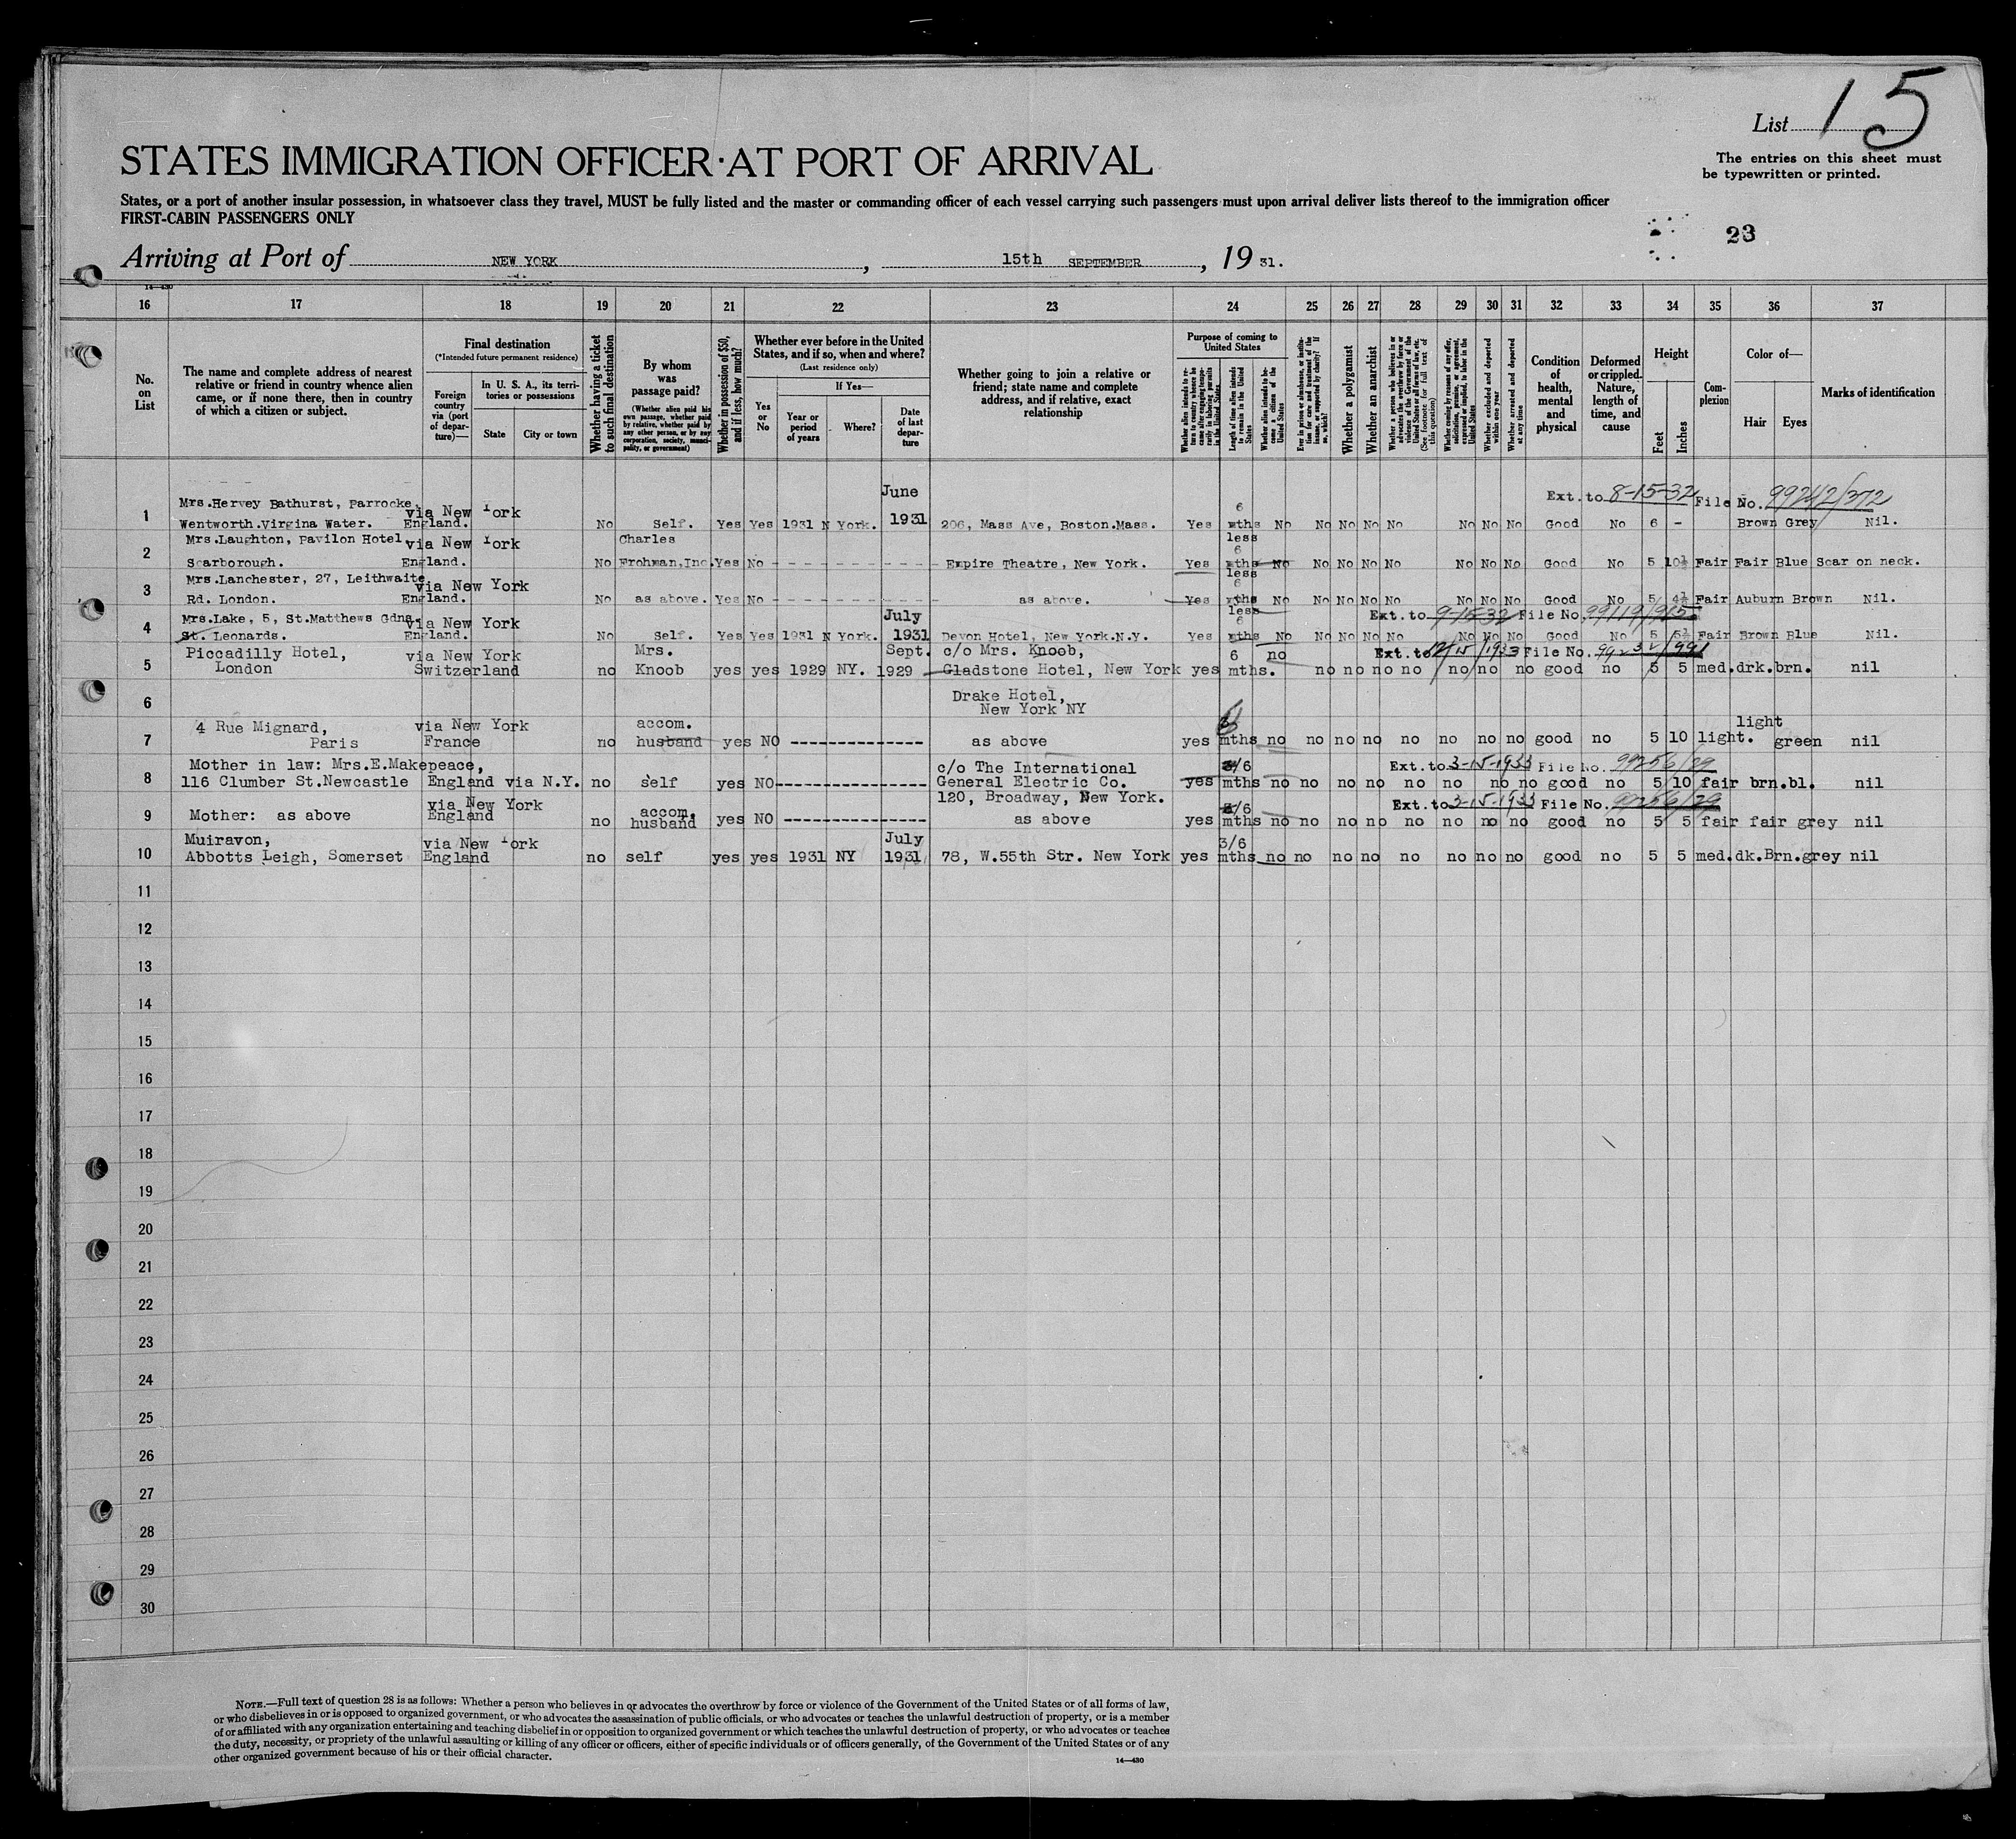 List 15
The entries on this sheet must
be typewritten or printed.
STATES IMMIGRATION OFFICER AT PORT OF ARRIVAL
States, or a port of another insular possession, in whatsoever class they travel, MUST be fully listed and the master or commanding officer of each vessel carrying such passengers must upon arrival deliver lists thereof to the immigration officer
FIRST-CABIN PASSENGERS ONLY
23
Arriving at Port of NEW YORK, 15th SEPTEMBER, 19 31.
14—430
16 17 18 19 20 21 22 23 24 25 26 27 28 29 30 31 32 33 34 35 36 37
No. on List
The name and complete address of nearest relative or friend in country whence alien came, or if none there, then in country of which a citizen or subject.
Final destination
(*Intended future permanent residence)
Foreign country via (port of departure)—
In U. S. A., its territories or possessions
State
City or town
Whether having a ticket to such final destination
By whom was passage paid?
(Whether alien paid his own passage, whether paid by relative, whether paid by any other person, or by any corporation, society, municipality, or government)
Whether in possession of $50, and if less, how much?
Whether ever before in the United States, and if so, when and where?
(Last residence only)
Yes or No
If Yes—
Year or period of years
Where?
Date of last departure
Whether going to join a relative or friend; state name and complete address, and if relative, exact relationship
Purpose of coming to United States
Whether alien intends to return to country whence he came after engaging temporarily in laboring pursuits in the United States
Length of time alien intends to remain in the United States
Whether alien intends to become a citizen of the United States
Ever in prison or almshouse, or institution for care and treatment of the insane, or supported by charity? If so, which?
Whether a polygamist
Whether an anarchist
Whether a person who believes in or advocates the overthrow by force or violence of the Government of the United States or all forms of law, etc. (See footnote for full text of this question)
Whether coming by reason of any offer, solicitation, promise, or agreement, expressed or implied, to labor in the United States
Whether excluded and deported within one year
Whether arrested and deported at any time
Condition of health, mental and physical
Deformed or crippled. Nature, length of time, and cause
Height
Feet
Inches
Complexion
Color of—
Hair
Eyes
Marks of identification
June
Ext. to 8-15-32 File No. 99242/372
1 Mrs.Hervey Bathurst, Parrocke, via New York 6
Wentworth.Virgina Water. England. No Self. Yes Yes 1931 N York. 1931 206, Mass Ave, Boston.Mass. Yes mths No No No No No No No No Good No 6 - Brown Grey Nil.
2 Mrs.Laughton, Pavilon Hotel via New York Charles less 6
Scarborough. England. No Frohman,Inc. Yes No - - - - - - - - - - Empire Theatre, New York. Yes mths No No No No No No No No Good No 5 10½ Fair Fair Blue Scar on neck.
3 Mrs.Lanchester, 27, Leithwaite via New York less 6
Rd. London. England. No as above. Yes No - - - - - - - - - - as above. Yes mths No No No No No No No No Good No 5 4½ Fair Auburn Brown Nil.
4 Mrs.Lake, 5, St.Matthews Gdns. via New York July less 6 Ext. to 9-15-32 File No. 99119/915
St. Leonards. England. No Self. Yes Yes 1931 N York. 1931 Devon Hotel, New York.N.Y. Yes mths No No No No No No No No Good No 5 5½ Fair Brown Blue Nil.
5 Piccadilly Hotel, via New York Mrs. Sept. c/o Mrs. Knoob, 6 no Ext. to File No.
London Switzerland no Knoob yes yes 1929 NY. 1929 Gladstone Hotel, New York yes mths. no no no no no no no good no 5 5 med. drk. brn. nil
6 Drake Hotel,
New York NY
7 4 Rue Mignard, via New York accom. light
Paris France no husband yes NO -------------- as above yes mths no no no no no no no no good no 5 10 light. green nil
8 Mother in law: Mrs.E.Makepeace, c/o The International 3/6 Ext. to 3-15-1933 File No. 99256/29
116 Clumber St.Newcastle England via N.Y. no self yes NO-------------- General Electric Co. yes mths no no no no no no no no good no 5 10 fair brn. bl. nil
120, Broadway, New York.
9 via New York 3/6 Ext. to 3-15-1933 File No. 99256/29
Mother: as above England no accom. husband yes NO -------------- as above yes mths no no no no no no no no good no 5 5 fair fair grey nil
10 Muiravon, via New York July 3/6
Abbotts Leigh, Somerset England no self yes yes 1931 NY 1931 78, W.55th Str. New York yes mths no no no no no no no no good no 5 5 med. dk.Brn. grey nil
11
12
13
14
15
16
17
18
19
20
21
22
23
24
25
26
27
28
29
30
NOTE.—Full text of question 28 is as follows: Whether a person who believes in or advocates the overthrow by force or violence of the Government of the United States or of all forms of law,
or who disbelieves in or is opposed to organized government, or who advocates the assassination of public officials, or who advocates or teaches the unlawful destruction of property, or is a member
of or affiliated with any organization entertaining and teaching disbelief in or opposition to organized government or which teaches the unlawful destruction of property, or who advocates or teaches
the duty, necessity, or propriety of the unlawful assaulting or killing of any officer or officers, either of specific individuals or of officers generally, of the Government of the United States or of any
other organized government because of his or their official character.
14—430